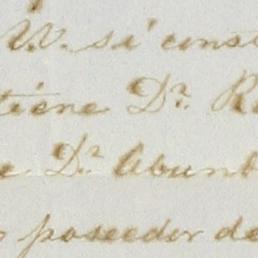 W. si const
tiene Dr. R
e Dr. Abun
poseedor de